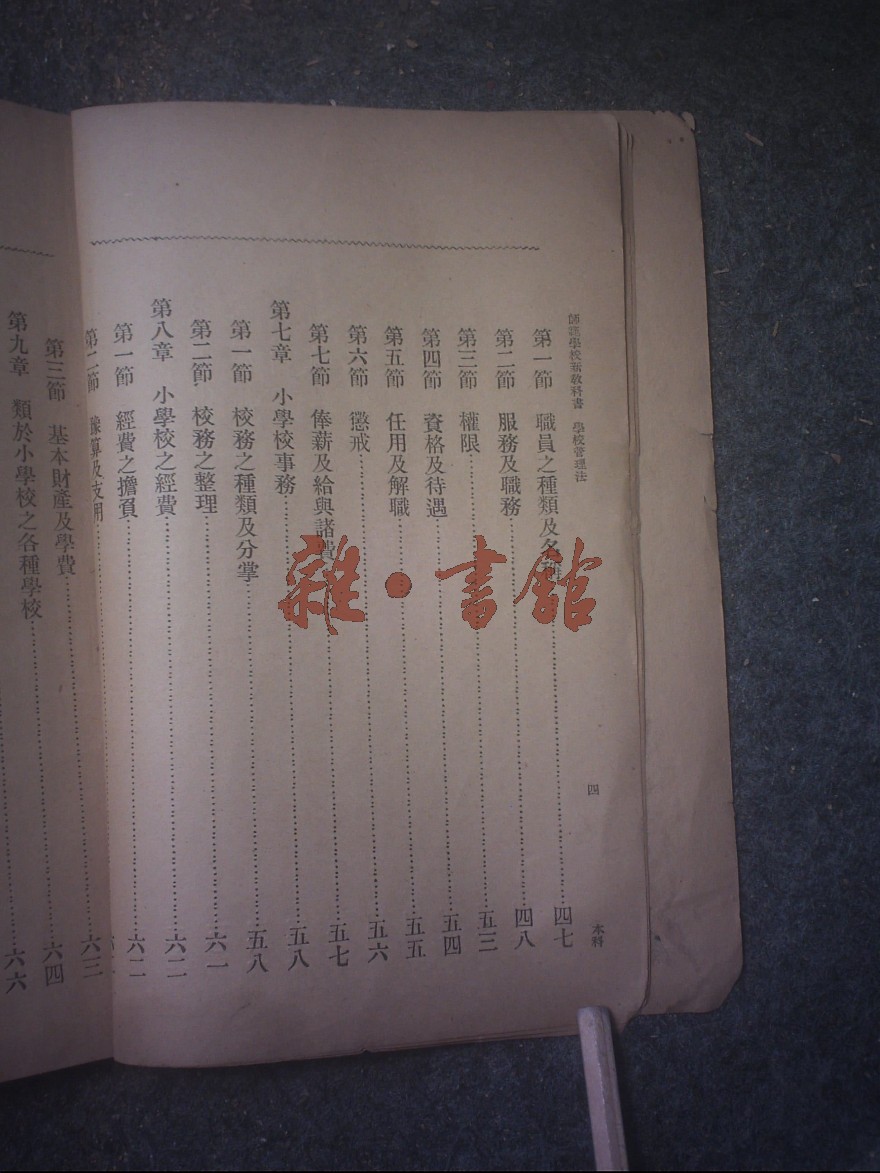 師範學校新教科書 學校管理法 四 本科
第一節 職員之種類及名稱 四七
第二節 服務及職務 四八
第三節 權限 五三
第四節 資格及待遇 五四
第五節 任用及解職 五五
第六節 懲戒 五六
第七節 俸薪及給與諸費 五七
第七章 小學校事務 五八
第一節 校務之種類及分掌 五八
第二節 校務之整理 六一
第八章 小學校之經費 六二
第一節 經費之擔負 六二
第二節 豫算及支用 六三
第三節 基本財產及學費 六四
第九章 類於小學校之各種學校 六六
雜·書館